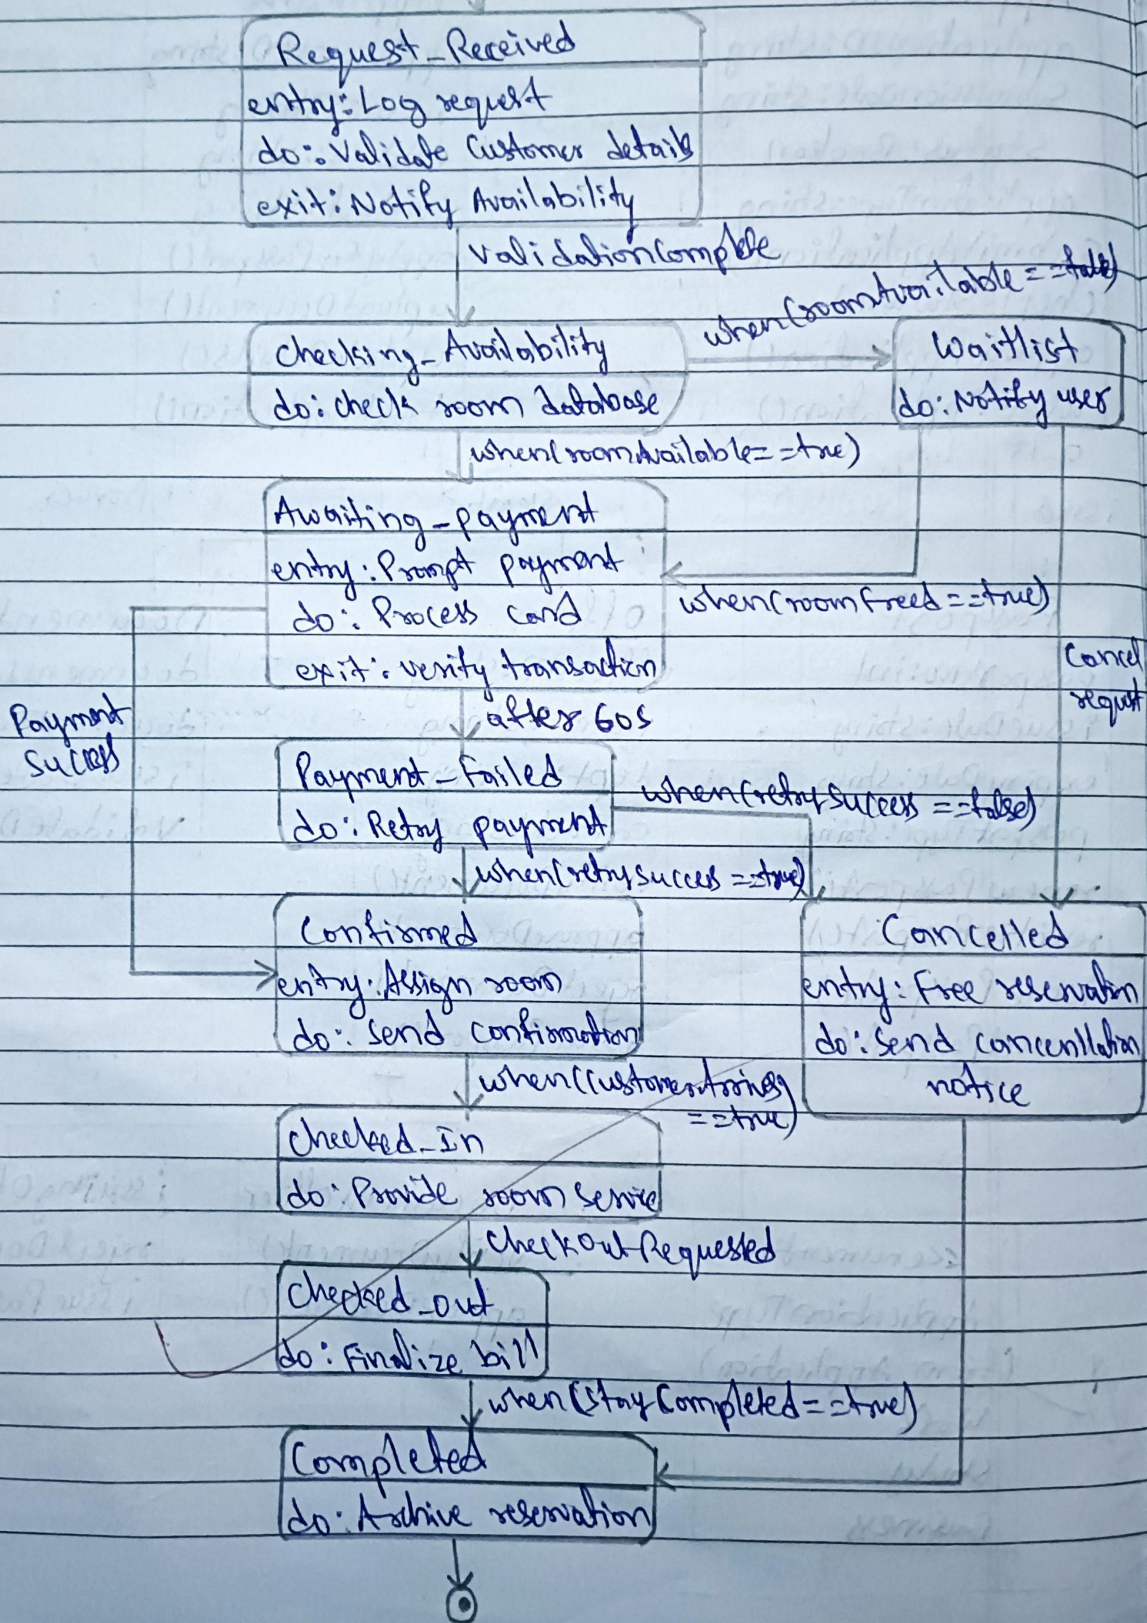 Request_Received
entry: Log request
do: Validate Customer details
exit: Notify Availability
validationComplete
when(roomAvailable==false)
Checking_Availability
do: check room database
Waitlist
do: Notify user
when(roomAvailable==true)
Awaiting_payment
entry: Prompt payment
do: Process card
exit: verify transaction
when(roomfreed==true)
Cancel
request
Payment
Success
after 60s
Payment_Failed
do: Retry payment
when(retrySuccess==false)
when(retrySuccess==true)
Confirmed
entry: Assign room
do: Send confirmation
Cancelled
entry: Free reservation
do: Send cancenllation
notice
when(CustomerArrives
==true)
Checked_In
do: Provide room service
CheckOutRequested
Checked_out
do: Finalize bill
when(stayCompleted==true)
Completed
do: Archive reservation